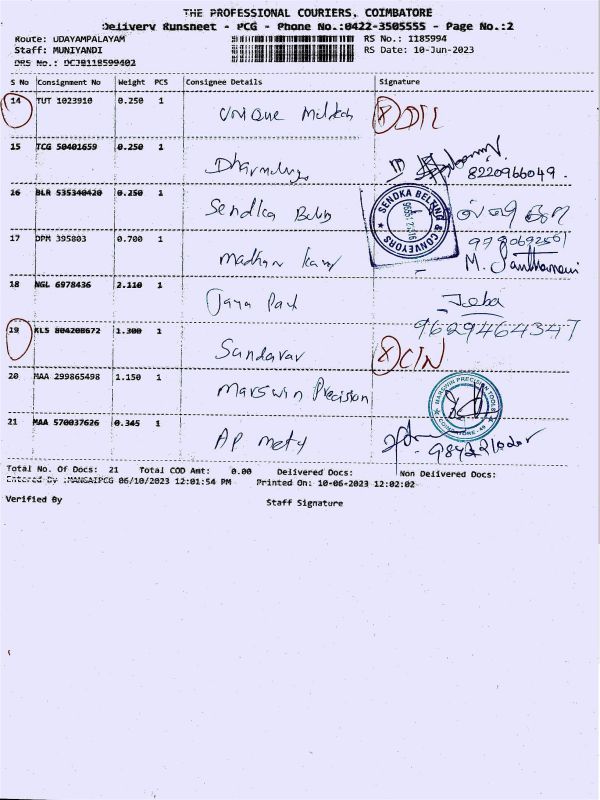 THE PROFESSIONAL COURIERS, COIMBATORE
Delivery Runsheet - PCG - Phone No.:0422-3505555 - Page No.:2
Route: UDAYAMPALAYAM RS No.: 1185994
Staff: MUNIYANDI RS Date: 10-Jun-2023
DRS No.: DCJ0118599402
S No Consignment No Weight PCS Consignee Details Signature
14 TUT 1023910 0.250 1 Unique
15 TCG 50401659 0.250 1
8220966049.
16 BLR 535340420 0.250 1 Sendka Belting
SENDKA BELTING & CONVEYORS
17 DPM 395803 0.700 1 madhan
M. Santhamani
18 NGL 6978436 2.110 1 Jaya Jeba
9629464347
19 KLS 804208672 1.300 1 Sundaran
20 MAA 299865498 1.150 1 Marswin Precision
MARSWIN PRECISION TOOLS
21 MAA 570037626 0.345 1 AP
Total No. Of Docs: 21 Total COD Amt: 0.00 Delivered Docs: Non Delivered Docs:
Entered By :MANGAIPCG 06/10/2023 12:01:54 PM Printed On: 10-06-2023 12:02:02
Verified By Staff Signature